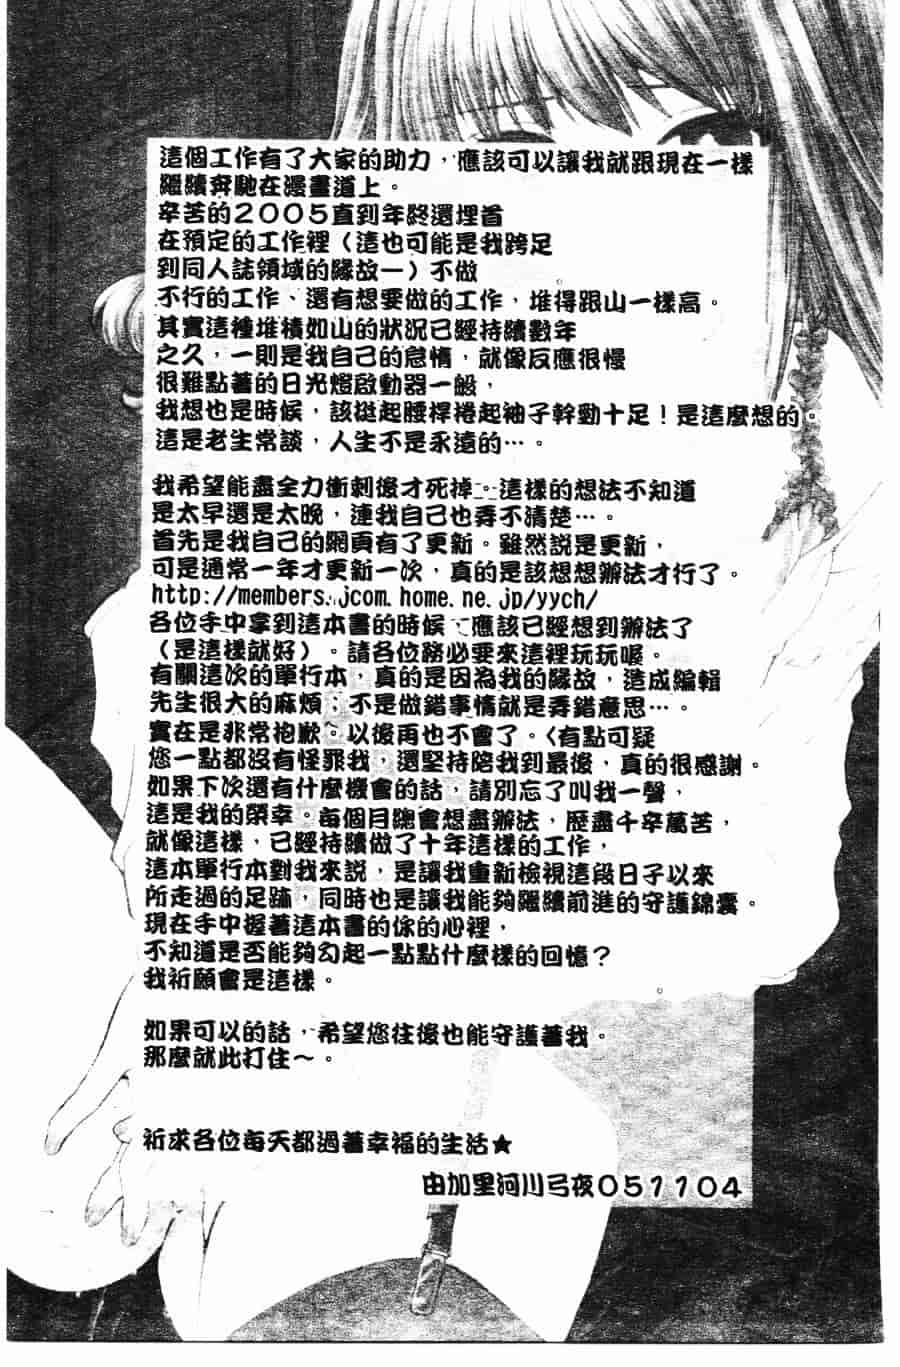 這個工作有了大家的助力，應該可以讓我就跟現在一樣
繼續奔馳在漫畫道上。
辛苦的２００５直到年終還埋首
在預定的工作裡（這也可能是我跨足
到同人誌領域的緣故－）不做
不行的工作、還有想要做的工作，堆得跟山一樣高。
其實這種堆積如山的狀況已經持續數年
之久，一則是我自己的怠惰，就像反應很慢
很難點著的日光燈啟動器一般，
我想也是時候，該挺起腰桿捲起袖子幹勁十足！是這麼想的。
這是老生常談，人生不是永遠的…。
我希望能盡全力衝刺後才死掉。這樣的想法不知道
是太早還是太晚，連我自己也弄不清楚…。
首先是我自己的網頁有了更新。雖然說是更新，
可是通常一年才更新一次，真的是該想想辦法才行了。
http://members.jcom.home.ne.jp/yych/
各位手中拿到這本書的時候，應該已經想到辦法了
（是這樣就好）。請各位務必要來這裡玩玩喔。
有關這次的單行本，真的是因為我的緣故，造成編輯
先生很大的麻煩；不是做錯事情就是弄錯意思…。
實在是非常抱歉。以後再也不會了。〈有點可疑
您一點都沒有怪罪我，還堅持陪我到最後，真的很感謝。
如果下次還有什麼機會的話，請別忘了叫我一聲，
這是我的榮幸。每個月總會想盡辦法，歷盡千辛萬苦，
就像這樣，已經持續做了十年這樣的工作，
這本單行本對我來說，是讓我重新檢視這段日子以來
所走過的足跡，同時也是讓我能夠繼續前進的守護錦囊。
現在手中握著這本書的你的心裡，
不知道是否能夠勾起一點點什麼樣的回憶？
我祈願會是這樣。
如果可以的話，希望您往後也能守護著我。
那麼就此打住～。
祈求各位每天都過著幸福的生活★
由加里河川弓夜０５１１０４